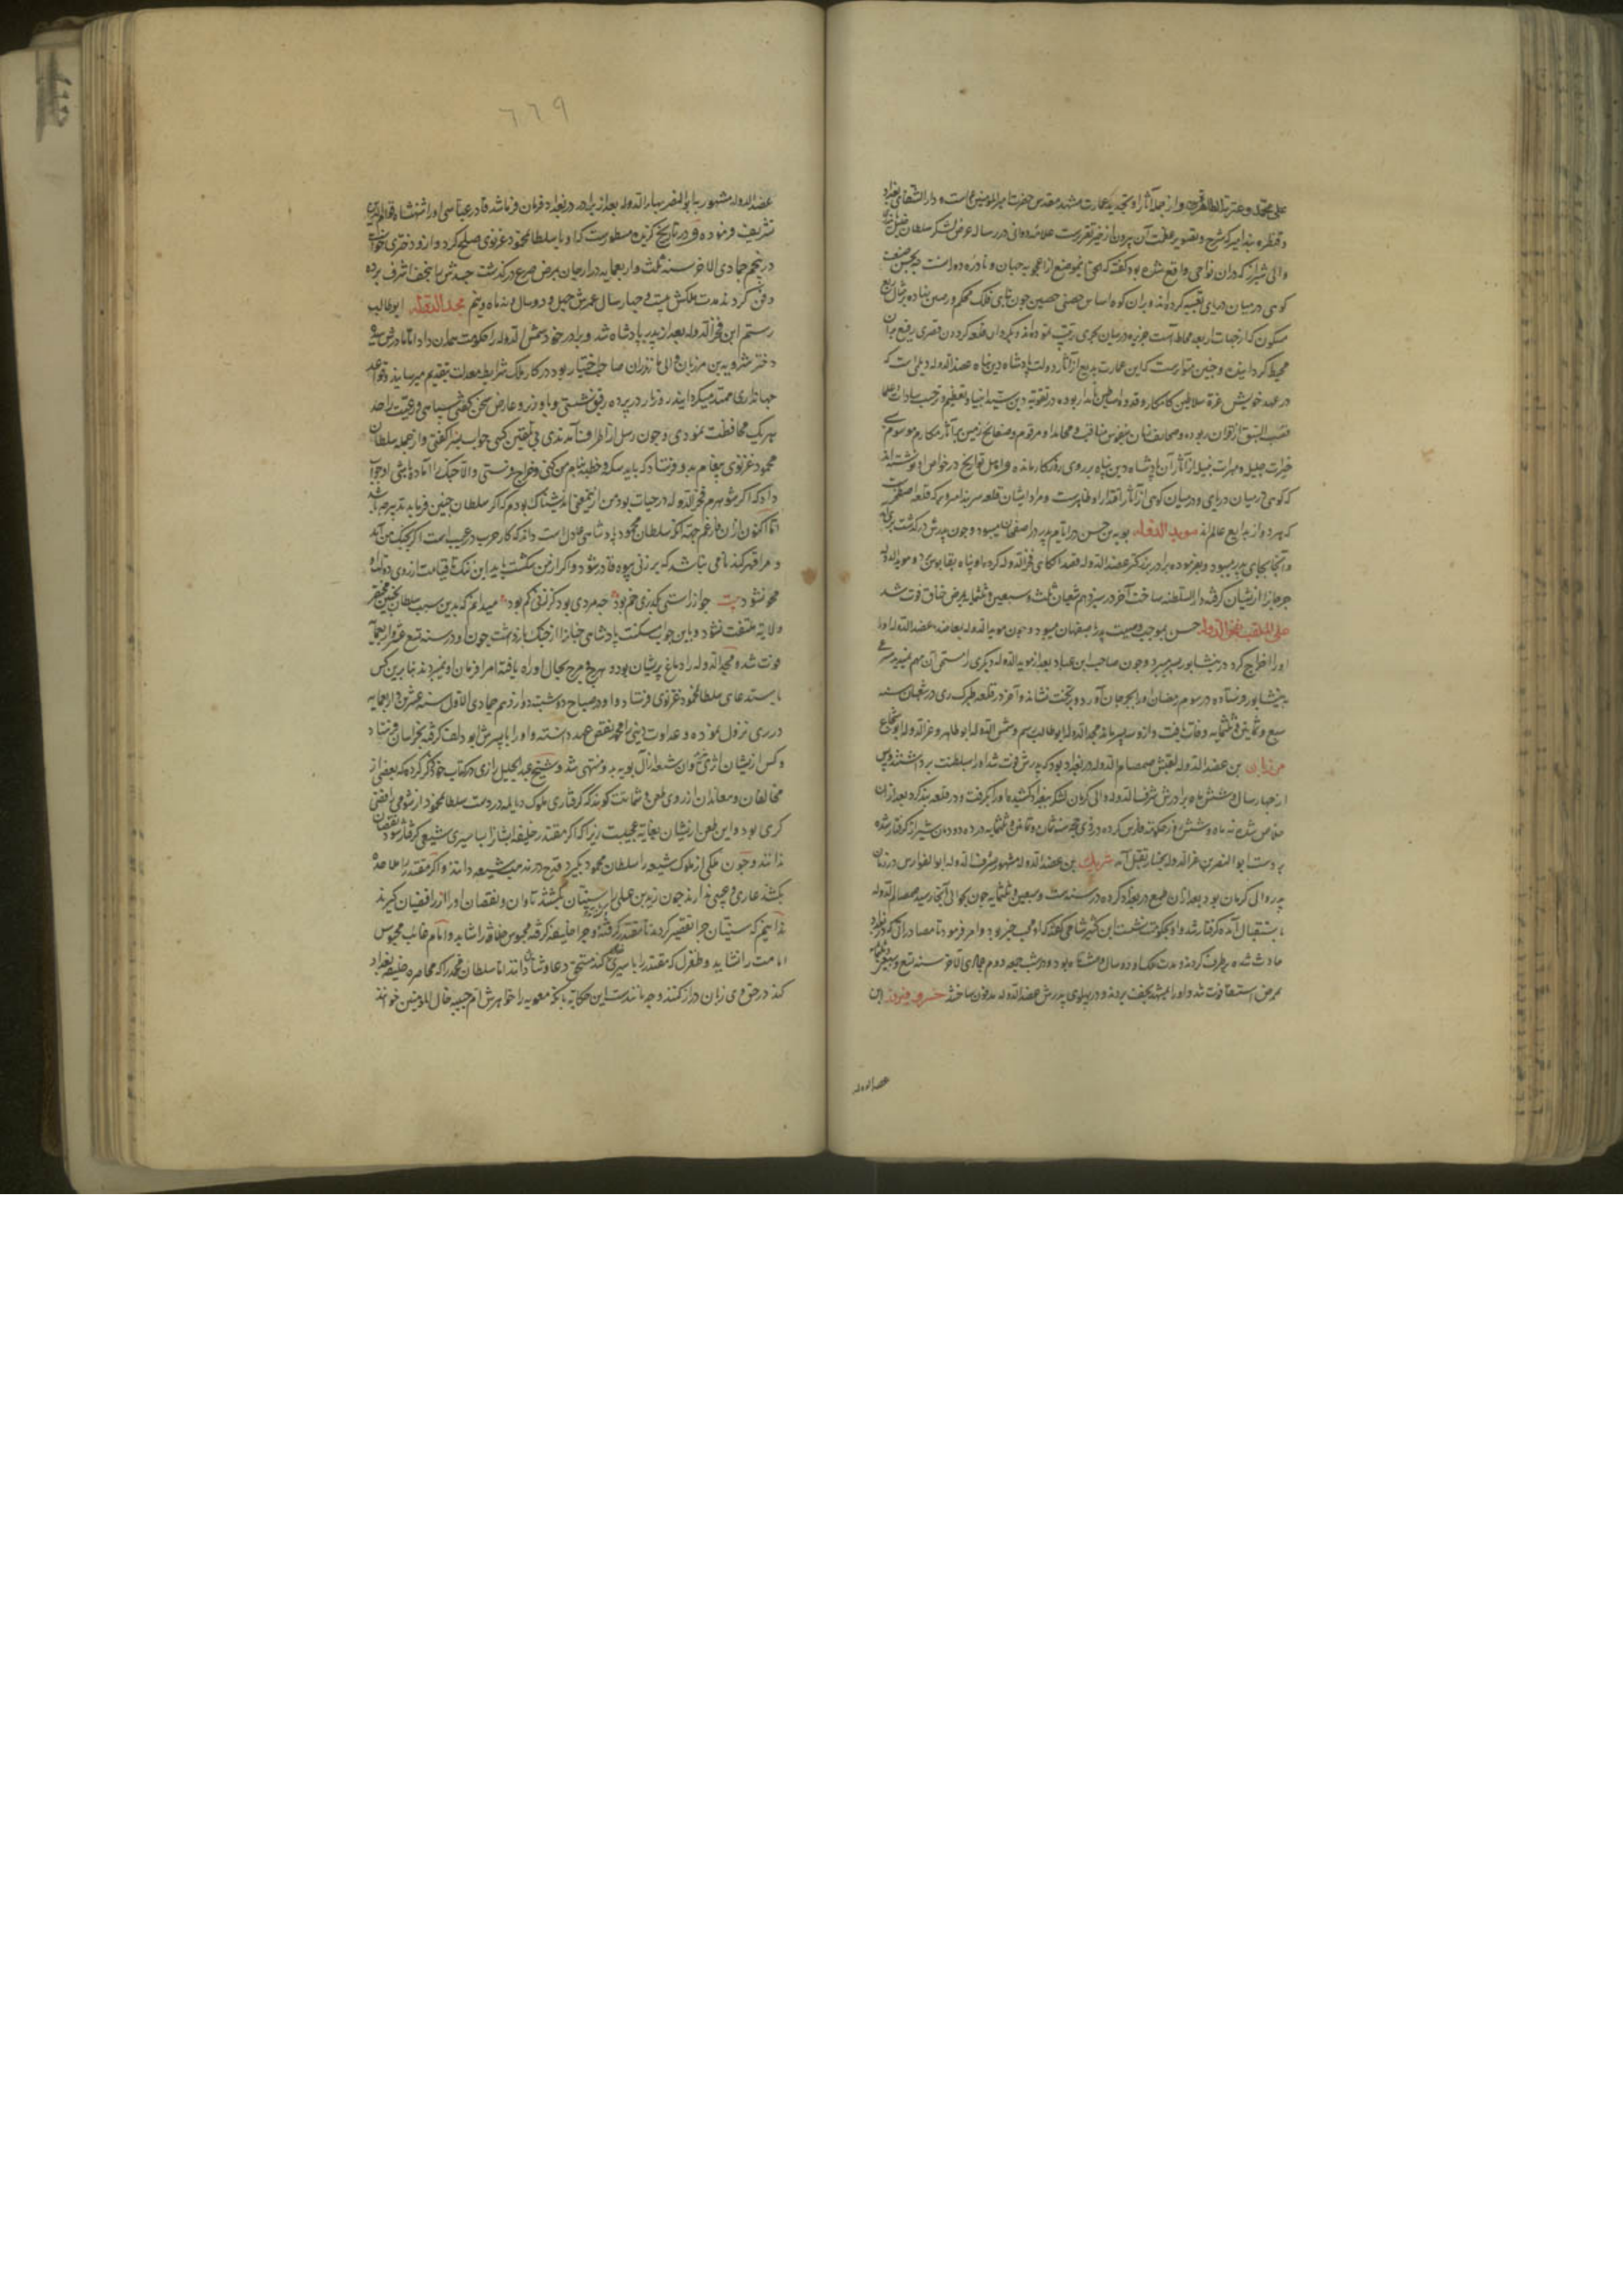 علی محمد و عترته الطاهرین و از جمله آثار او تجدید عمارت مشهد مقدس حضرت امیر المؤمنین است و دار الشفای بغداد
و قنطره بند امیر که شرح و تصویر عظمت آن بیرون از خیر تقریر است علامه دوانی در رساله عرض لشکر سلطان خلیل
والی شیراز که در آن نواحی واقع شده بود گفته که
کوهی در میان دریای تعبیه کرده اند و بر آن کوه اساس حصنی حصین چون فلک محکم
مسکون که از جهات اربعه محاط آست جزیره در میان بحری
محیط گردانیده و چنین متواترست که این عمارت بدیع از آثار دولت پادشاه دین پناه عضد الدوله دیلمی است که
در عهد خویش غرة سلاطین کامکار و قدوه اساطین نامدار بوده در تقویه دین سید انبیا و تعظیم و ترحیب سادات و علما
قصب السبق از اقران ربوده و صحایف
خیرات جلیله و مبرات نبیله از آثار آن پادشاه دین پناه بر روی روزگار مانده و اهل تواریخ در خواص او نوشته اند
که کوهی در میان دریایی و دریا در میان کوهی از آثار اقتدار او ظاهرست و مراد ایشان قلعه سر بند امیر و برکه قلعه اصطخرست
که هر دو از بدایع عالم اند مؤید الدوله بویه بن حسن در ایام پدر در اصفهان میبود و چون پدرش در گذشت
و آنجا بجای پدر میبود و بفرموده برادر بزرگتر عضد الدوله قصد الکای فخر الدوله کرد و او پناه بقابوس برد و مؤید الدوله
جرجانرا از ایشان گرفته دار السلطنه ساخت آخر در سیزدهم شعبان ثلث و سبعین و ثلثمایه بمرض خناق فوت شد
علی الملقب بفخر الدوله حسن بموجب وصیت پدر باصفهان میبود و چون مؤید الدوله بمعاضد عضد الدوله او را
او را اخراج کرد در نیشابور بسر میبرد و چون صاحب ابن عباد بعد از مؤید الدوله دیگری را مستحق آن مهم نمیدید
بنیشابور فرستاده در سیوم رمضان او را بجرجان آورد و بر تخت نشاند و آخر در قلعه طبرک ری در شعبان سنه
سبع و ثمانین و ثلثمایه وفات یافت و ازو سه پسر ماند مجد الدوله ابو طالب رستم و شمس الدوله ابو طاهر و عز الدوله ابو شجاع
مرزبان بن عضد الدوله لقبش صمصام الدوله در بغداد بود که پدرش فوت شد او را بسلطنت برداشتند و پس
از چهار سال و شش ماه برادرش شرف الدوله والی کرمان لشکر ببغداد کشیده او را بگرفت و در قلعه بند کرد بعد از آن
خلاص شده نه ماه و شش روز حکومت فارس کرده در ذی حجه سنه ثمان و ثمانین و ثلثمایه در ده دودمان شیراز گرفتار شده
بر دست ابو النصر بن عز الدوله بختیار بقتل آمد شیرزیل بن عضد الدوله مشهور بشرف الدوله ابو الفوارس در زمان
پدر والی کرمان بود بعد از آن طمع در بغداد کرده در سنه ست و سبعین و ثلثمایه چون بحوالی آنجا رسید صمصام الدوله
باستقبال آمده گرفتار شد و او بحکومت نشست ابن کثیر شامی گفته که او محب خیر بود و امر فرمود تا مصادرات که در بغداد
حادث شده بر طرف کردند و مدت ملک او دو سال و هشت ماه بود و در شب جمعه دوم جمادی الآخر سنه تسع و سبعین و ثلثمایه
بمرض استسقا فوت شد و او را بمشهد نجف بردند و در پهلوی پدرش عضد الدوله مدفون ساختند خسرو فیروز ابن
عضد الدوله
٦٦٩
عضد الدوله مشهور بابو النصر بهاء الدوله بعد از برادر در بغداد فرمان فرما شد قادر عباسی او را شهنشاه قوام الدین
تشریف فرموده و در تاریخ گزیده مسطورست که او با سلطان محمود غزنوی صلح کرد و ازو دختری خواست
در پنجم جمادی الاخر سنه ثلث و اربعمایه در ارجان بمرض صرع در گذشت جسدش بنجف اشرف برده
دفن کردند مدت ملکش بیست و چهار سال عمرش چهل و دو سال و نه ماه و نیم مجد الدوله ابو طالب
رستم ابن فخر الدوله بعد از پدر پادشاه شد و برادر خود شمس الدوله را حکومت همدان داد اما مادرش سیده
دختر شروین بن مرزبان والی مازندران صاحب اختیار بود در کار ملک شرایط معدلت بتقدیم میرسانید و قواعد
جهانداری ممهد میگردانید هر روز در پرده رقیق نشستی و با وزیر و عارض سخن گفتی سپاهی و رعیت را حد
هر یک محافظت نمودی و چون رسل از اطراف آمدندی بی تلقین کسی جواب سزا گفتی و از جمله سلطان
محمود غزنوی پیغام بدو فرستاد که باید سکه و خطبه بنام من کنی و خراج فرستی والا جنگ را آماده باشی او جواب
داد که اگر شوهرم فخر الدوله در حیات بود من ازین معنی اندیشناک بودم که اگر سلطان چنین فرماید تدبیر چه باشد
اما اکنون از آن فارغم جهة آنکه سلطان محمود پادشاهی عادل است و داند که کار حرب در غیب است اگر بجنگ من آید
و مرا قهر کند نامی نباشد که بر زنی بیوه قادر شود و اگر از من شکست یابد این ننگ تا قیامت از روی دولت او
محو نشود بیت چو از راستی بگذری خم بود چه مردی بود کز زنی کم بود میدانم که بدین سبب سلطان بچنین محقر
ولایة ملتفت نشود و باین جواب مسکت پادشاهی جبار را از جنگ باز داشت چون او در سنه تسع عشر و اربعمایه
فوت شد و مجد الدوله را دماغ پریشان بود و هرج و مرج بحال او راه یافته امرا فرمان او نمیبردند بنا برین کس
باستدعای سلطان محمود غزنوی فرستاد و او در صباح دوشنبه دوازدهم جمادی الاول سنه عشرین و اربعمایه
در ری نزول نموده و عداوت دینی را مخمد نقض عهد دانسته و او را با پسرش ابو دلف گرفته بخراسان فرستاد
و کس از ایشان اثری نداد و آن شعله از آل بویه به و منتهی شد و شیخ عبد الجلیل رازی در کتاب خود ذکر کرده که بعضی از
مخالفان و معاندان از روی طعن و شماتت گویند که گرفتاری ملوک دیالمه در دست سلطان محمود از شومی رافضی
گری بود و این طعن از ایشان بغایة عجیبست زیرا که اگر مقتدر خلیفه ایشانرا بساسیری شیعی گرفتار شود نقصان
ندانند و چون ملکی از ملوک شیعه را سلطان محمود بگیرد قدح در مذهب شیعه دانند و اگر مقتدر را ملاحده
بکشند عاری و عیبی ندارند چون زید بن علی را سنیان بکشند تاوان و نقصان او را از رافضیان گیرند
ندانیم که سنیان چرا تقصیر کردند تا مقتدر گرفته و چرا خلیفه گرفته محبوس خلافة را شاید و امام غائب محبوس
امامت را نشاید و طغرل که مقتدر را با سیری کند مستحق دعا و ثنا دانند اما سلطان محمد را که محاصره خلیفه بغداد
کند در حق وی زبان دراز کنند و چه مانندست این حکایة بآنکه معویه را خواهرش ام حبیبه خال المؤمنین خوانند